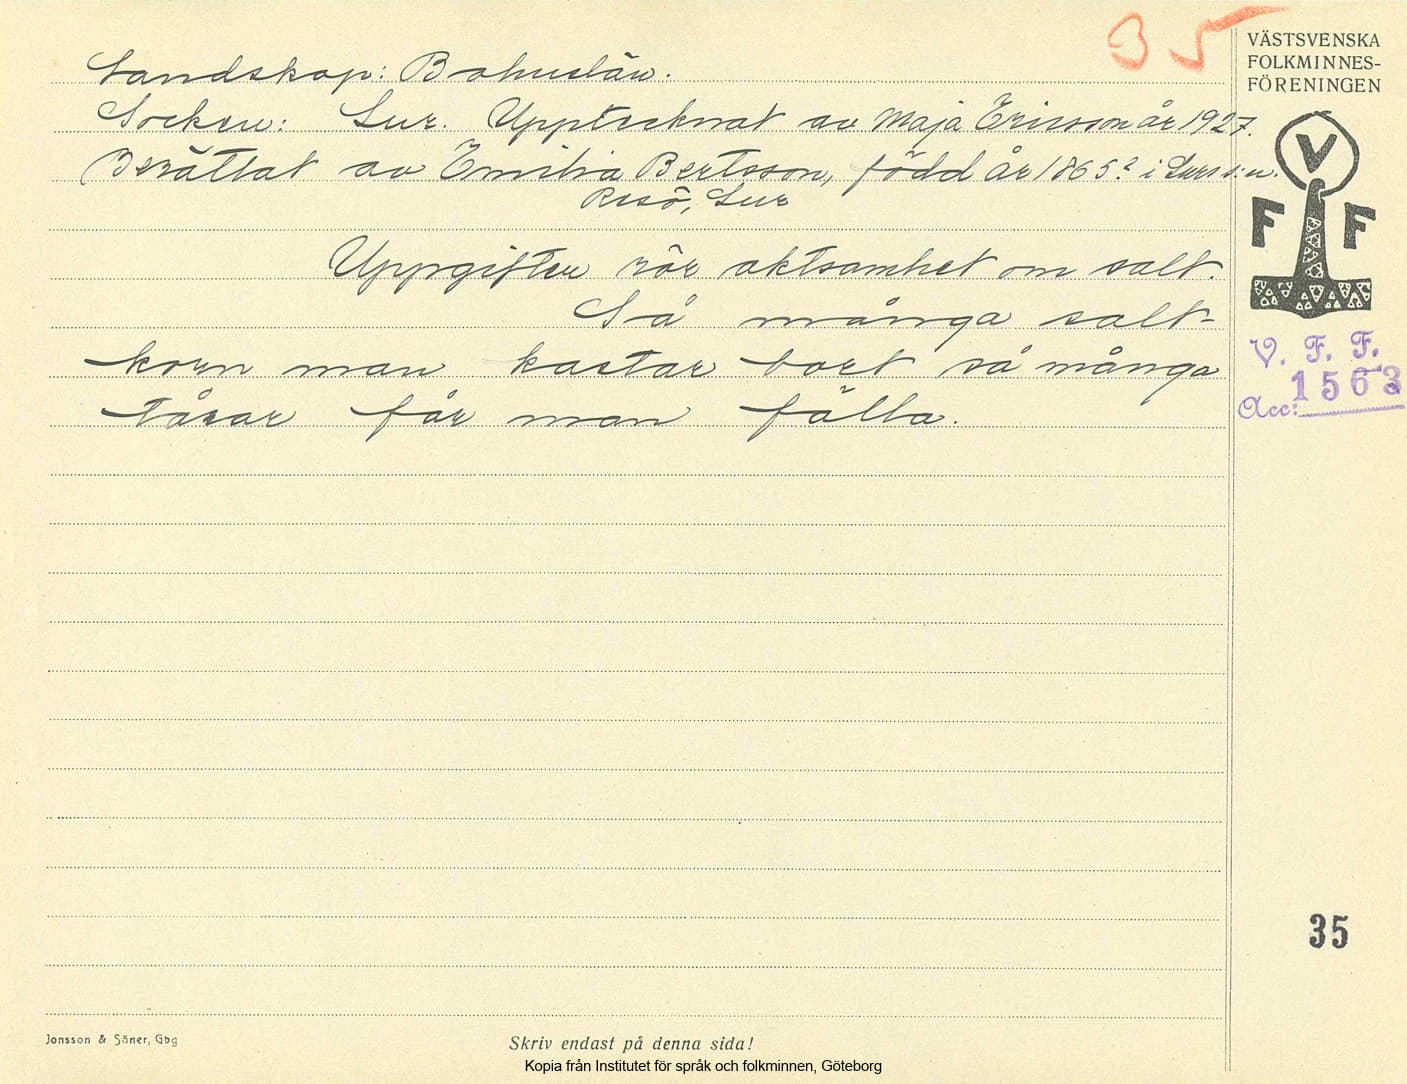 35
VÄSTSVENSKA
FOLKMINNES-
FÖRENINGEN
Landskap: Bohuslän.
Socken: Lur. Upptecknat av Maja Ericsson år 1927.
Berättat av Emilia Bertsson, född år 1865? i Lurs s:n.
Resö, Lur
V
F F
Uppgiften rör aktsamhet om salt.
Så många salt-
korn man kastar bort så många
tårar får man fälla.
V. F. F.
Acc: 1563
35
Jonsson & Söner, Gbg
Skriv endast på denna sida!
Kopia från Institutet för språk och folkminnen, Göteborg